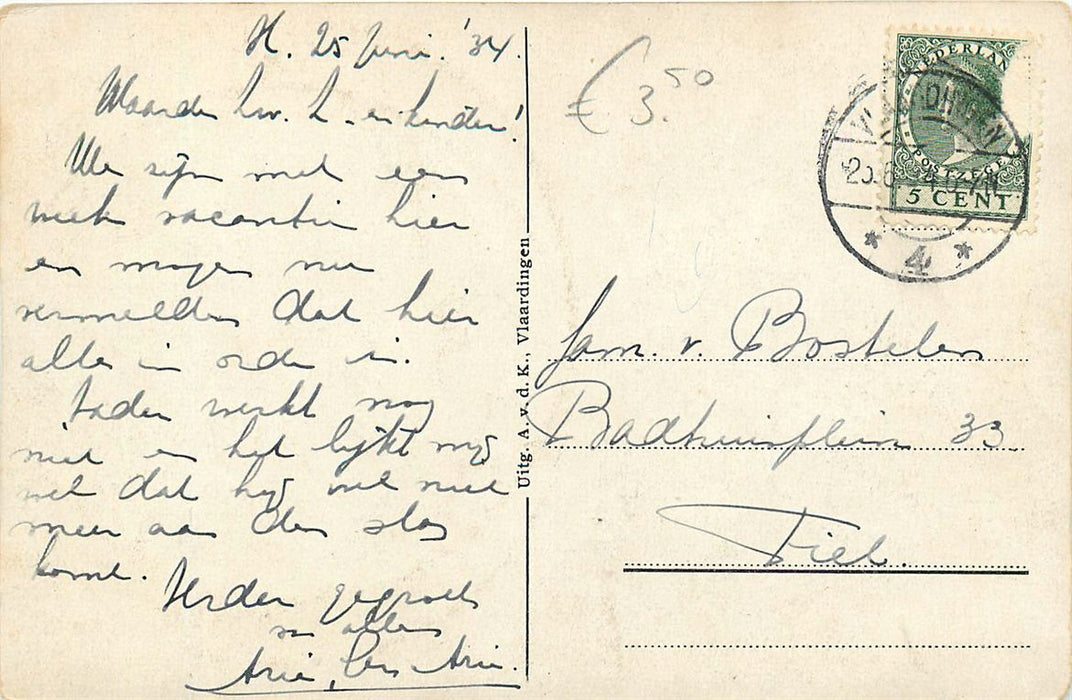 H. 25 Juni. '34.
Waarde hr. L. en kinder!
We zijn met een
week vacantie hier
en mogen nu
vermelden dat hier
alles in orde is.
Vader werkt nog
niet en het lijkt mij
wel dat hij wel niet
meer aan den slag
komt.
Verder gegroet
van allen
Arie, Arie.
Uitg. A. v. d. K., Vlaardingen
€ 3.50
NEDERLAN
POSTZEGEL
5 CENT
4
Fam. v. Bostelen
Badhuisplein 33
Tiel.